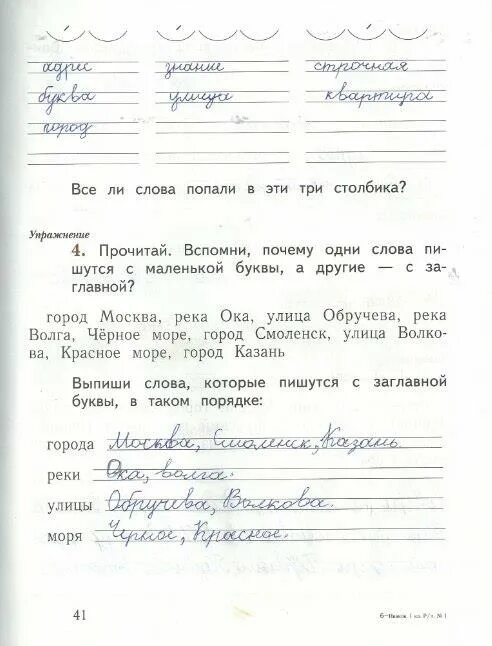 адрес знание строчная
буква улица квартира
город
Все ли слова попали в эти три столбика?
Упражнение
4. Прочитай. Вспомни, почему одни слова пи-
шутся с маленькой буквы, а другие — с за-
главной?
город Москва, река Ока, улица Обручева, река
Волга, Чёрное море, город Смоленск, улица Волко-
ва, Красное море, город Казань
Выпиши слова, которые пишутся с заглавной
буквы, в таком порядке:
города Москва, Смоленск, Казань
реки Ока, волга.
улицы Обручева, Волкова.
моря Черное, Красное.
41